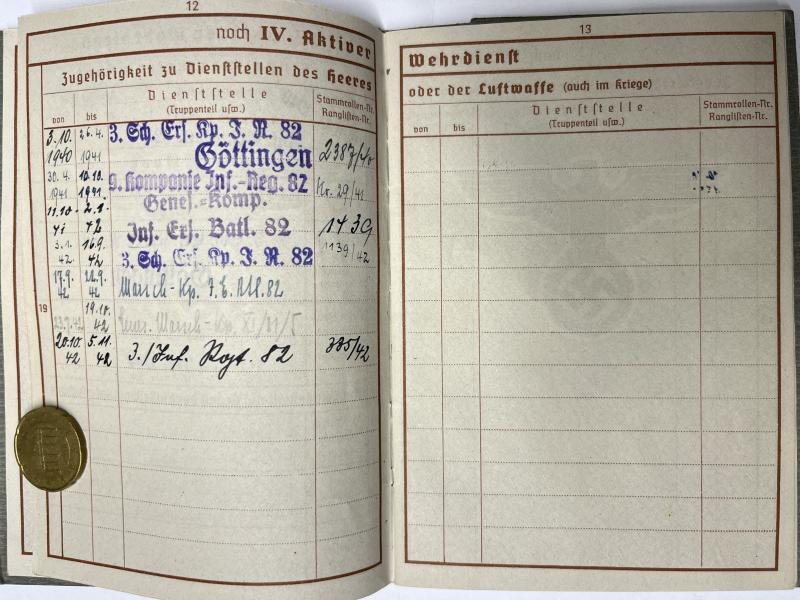 12
noch IV. Aktiver
Zugehörigkeit zu Dienststellen des Heeres
von
bis
Dienststelle
(Truppenteil usw.)
Stammrollen-Nr.
Ranglisten-Nr.
3.10. 26.4. 3. Sch. Ers. Kp. I. R. 82
1940 1941 Göttingen 2387/40
30.4. 10.10. 9. Kompanie Inf.-Reg. 82
1941 1941. Kr. 29/41
11.10- 2.1. Genes.-Komp.
41 42 Inf. Ers. Batl. 82 1439
3.1. 16.9. 1139/42
42 42 3. Sch. Ers. Kp. I. R. 82
17.9. 22.9.
42 42 Marsch-Kp. 82
19
19.10.
23.9.42 42 Marsch-Kp.
20.10. 5.11. 3./Inf. Rgt. 82 385/42
42 42
13
Wehrdienst
oder der Luftwaffe (auch im Kriege)
von
bis
Dienststelle
(Truppenteil usw.)
Stammrollen-Nr.
Ranglisten-Nr.